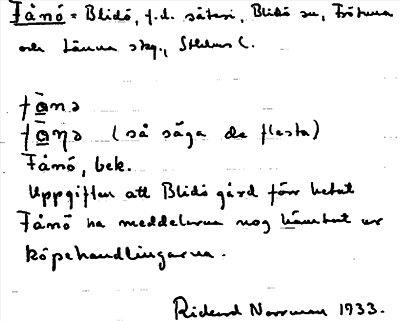 Fånö = Blidö, f.d. säteri, Blidö sn, Frötuna
och Länna skg., Sthlms l.
fånə
(så säga de flesta)
Fånö, bek.
Uppgiften att Blidö gård förr hetat
Fånö ha meddelarna nog hämtat ur
köpehandlingarna.
Rickard Norrman 1933.